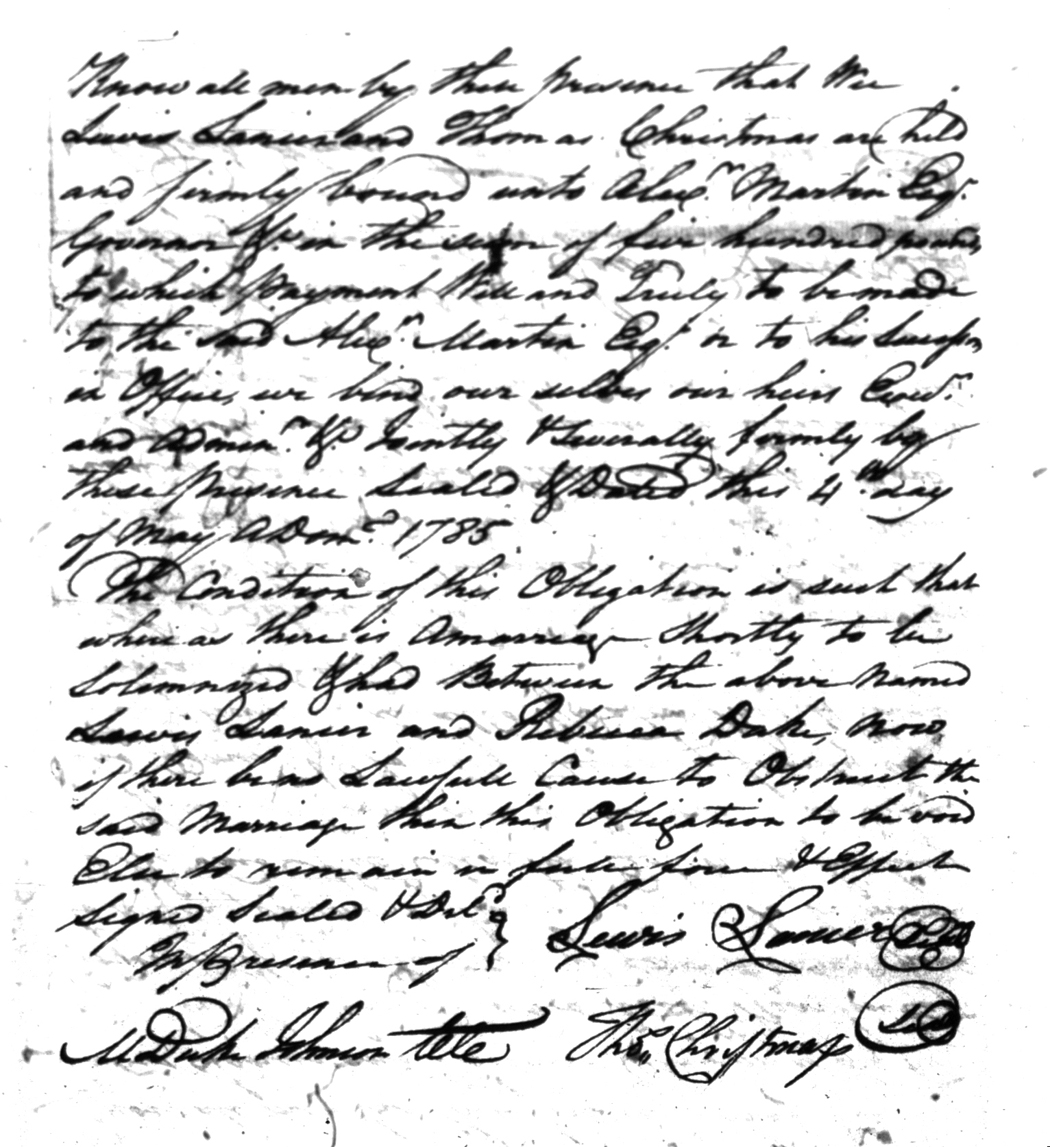 Know all men by these presence that We
Lewis Lanier and Thomas Christmas are held
and firmly bound unto Alex.r Martin Esq.r
Governor &c in the sum of five hundred pounds
to which payment Well and Truly to be made
to the said Alex.r Martin Esq.r or to his Successors
in Office, we bind our selves our heirs Exec.rs
and Admin.rs &c Jointly & Severally firmly by
these presence Sealed & Dated this 4.th day
of May A Dom.o 1785
The Condition of this Obligation is such that
where as there is A marriage Shortly to be
Solemnized & had Between the above Named
Lewis Lanier and Rebecca Duke, Now
if there be no Lawfull Cause to Obstruct the
said Marriage then this Obligation to be void
Else to remain in full force & Effect
Signed Sealed & Del.d }
In Presence of
Lewis Lanier
M Duke Johnson
Tho.s Christmas